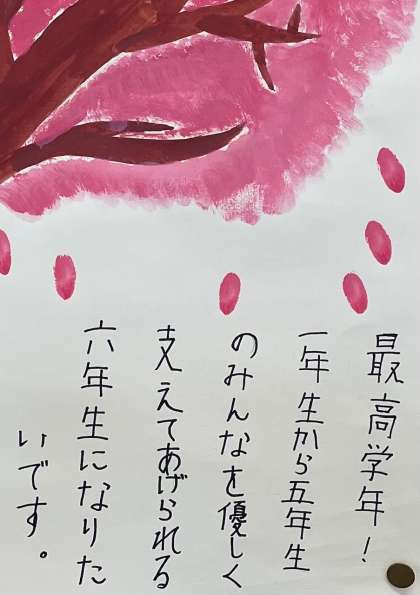 最高学年!
一年生から五年生
のみんなを優しく
支えてあげられる
六年生になりた
いです。